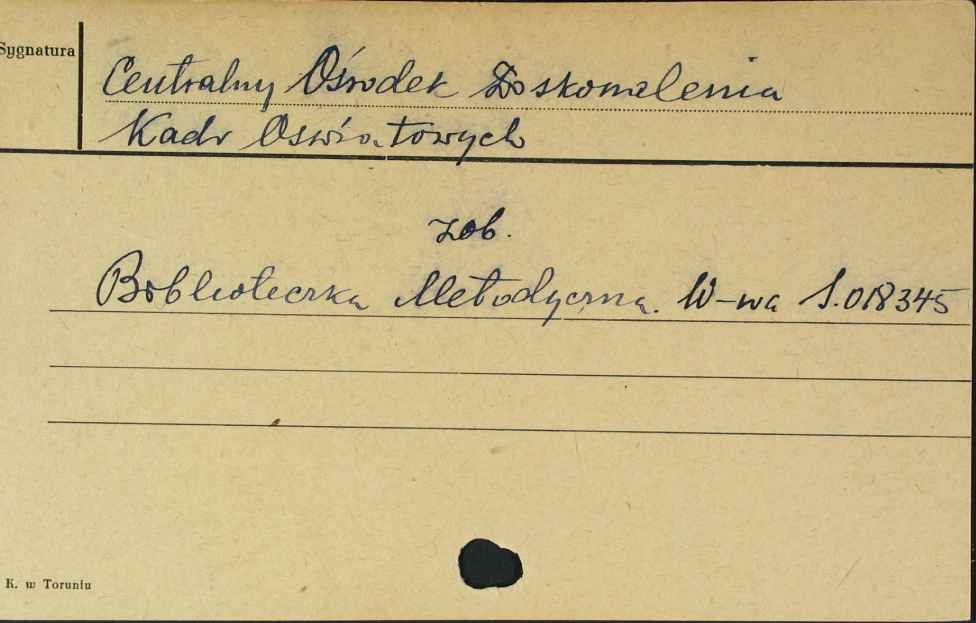 Sygnatura
Centralny Ośrodek Doskonalenia
Kadr Oświatowych
zob.
Biblioteczka Metodyczna. W-wa S.018345
K. w Toruniu